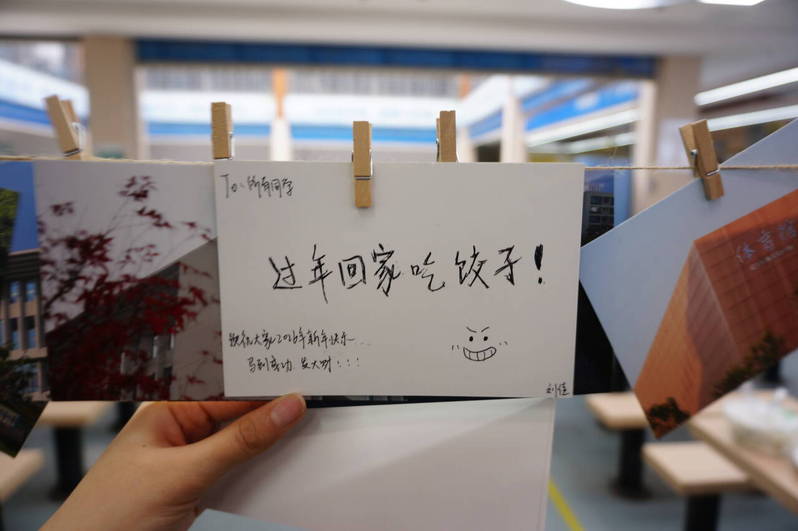 To: 所有同学
过年回家吃饺子!
祝福大家2026年新年快乐...
马到成功、发大财!!!
刘佳
体育馆